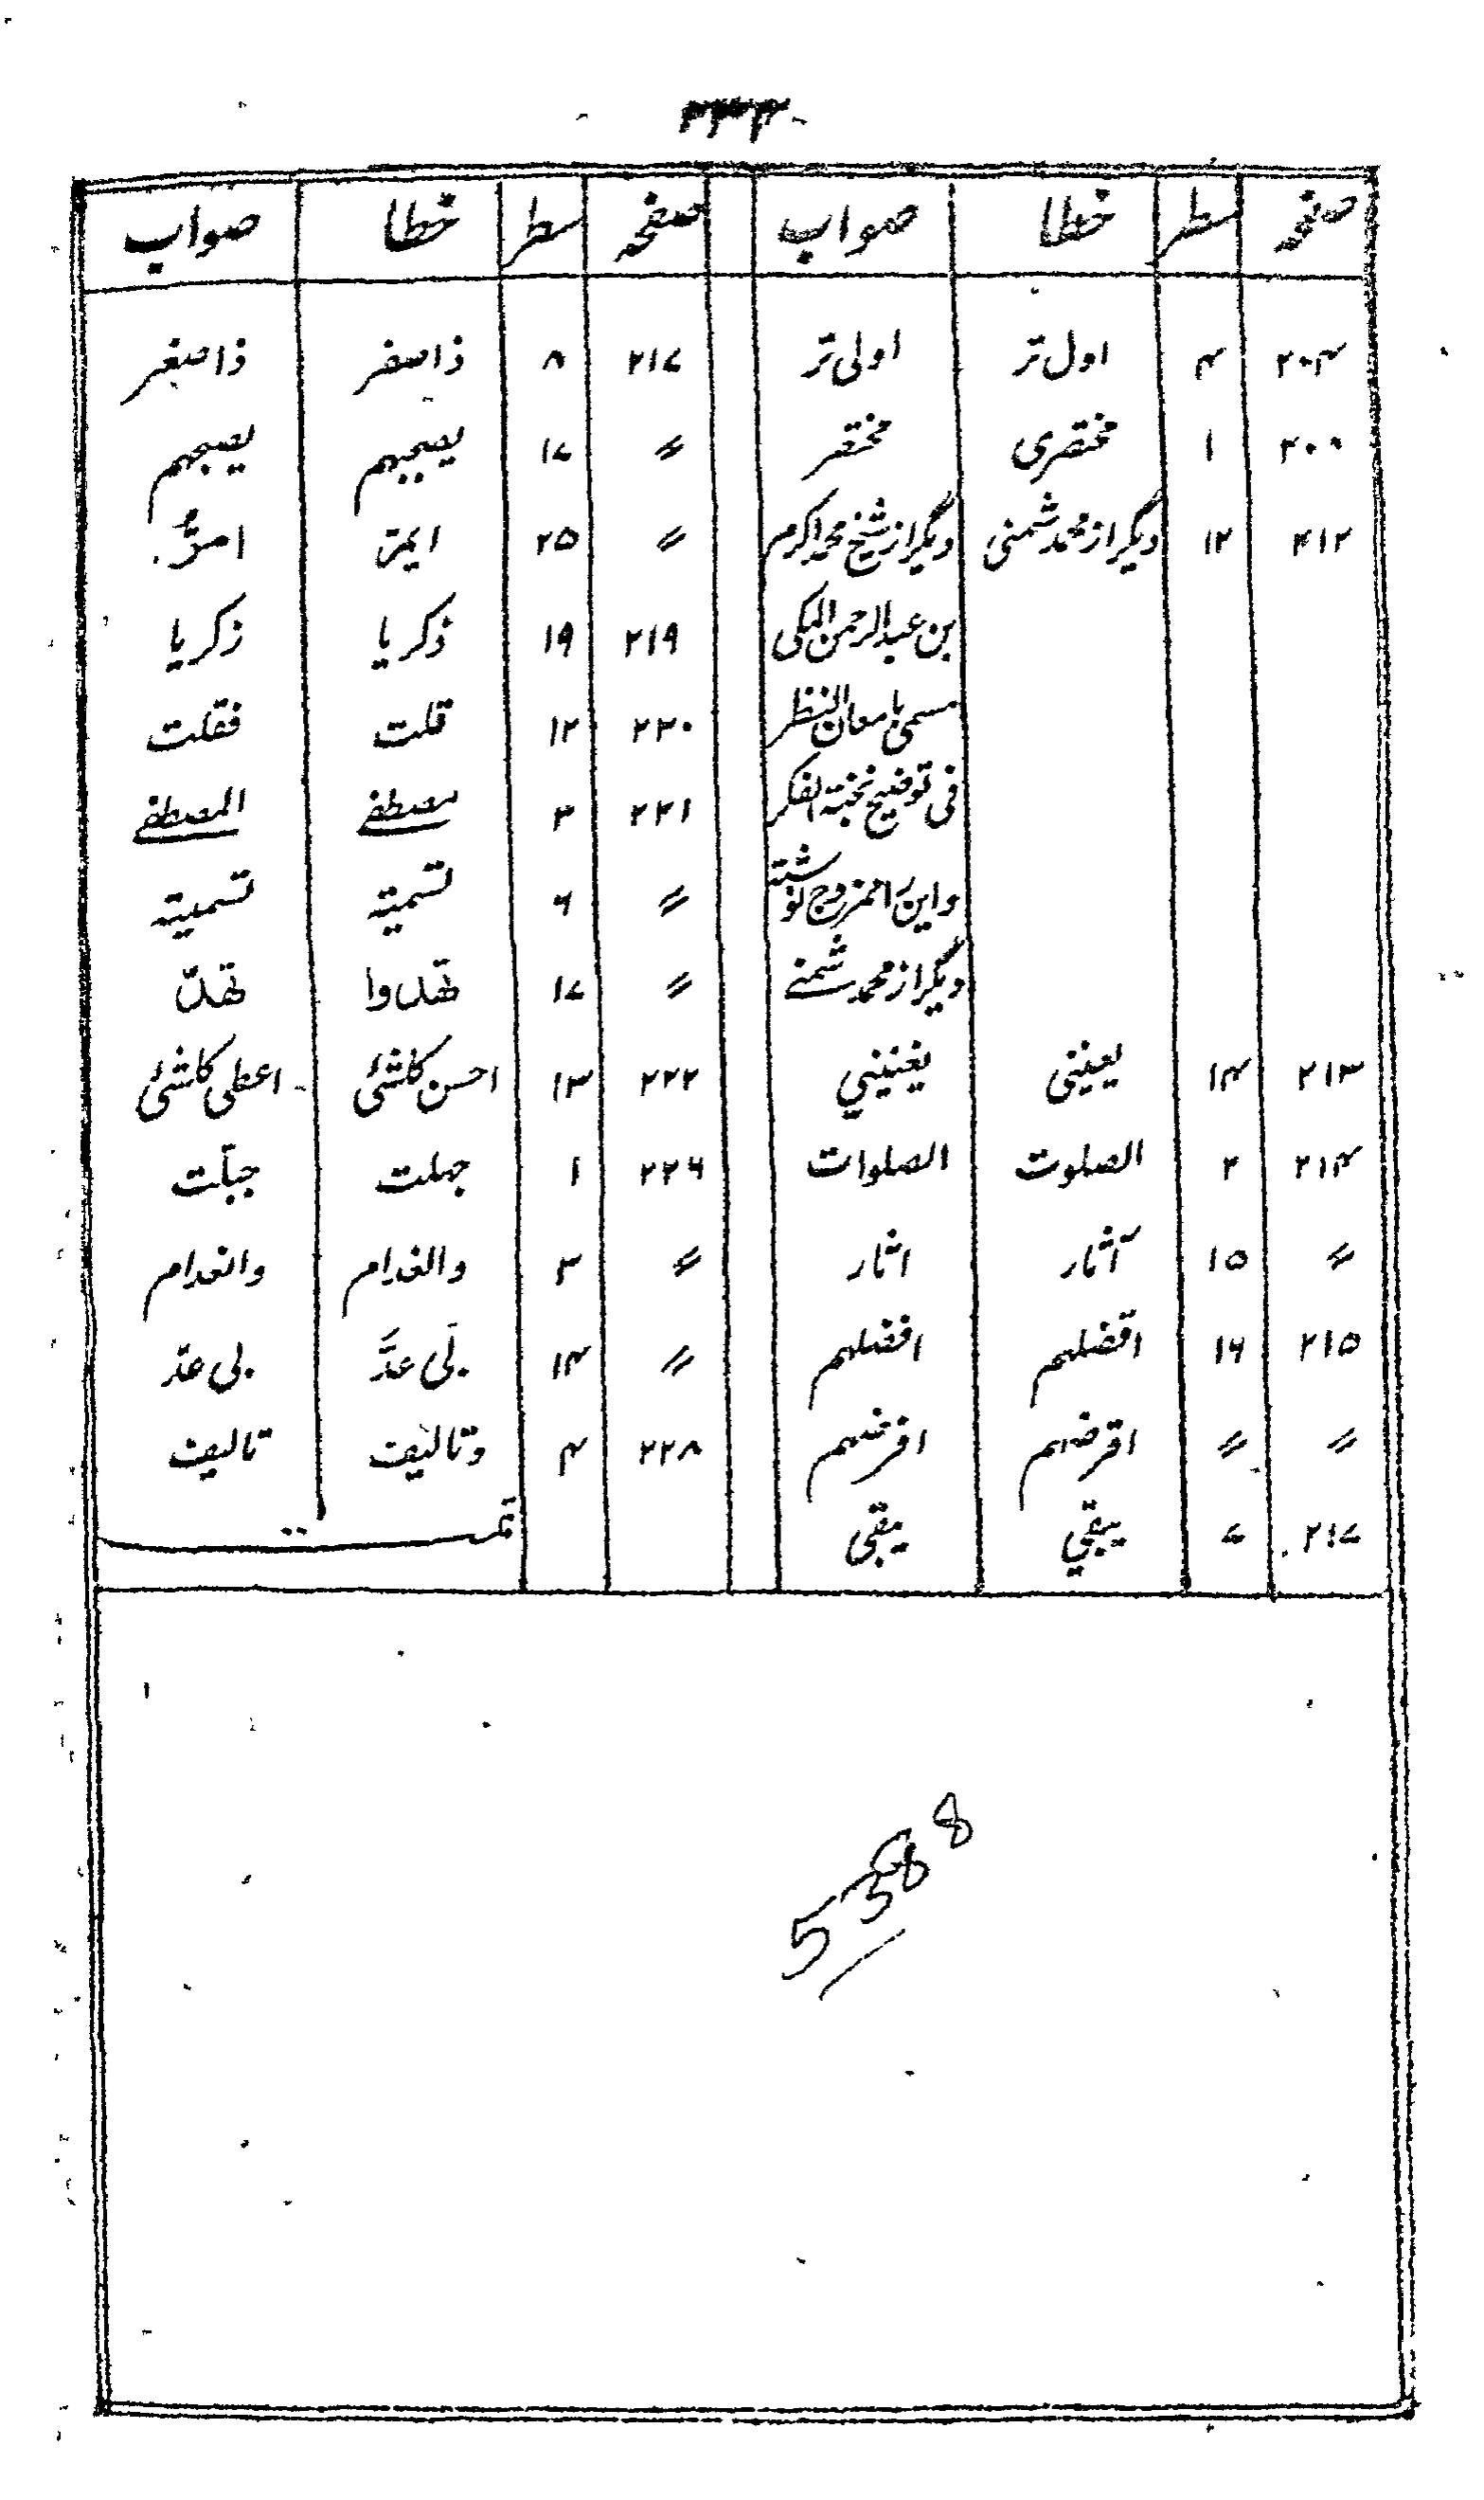 ۲۳۴
صفحہ سطر خطا صواب
۲۰۴ ۴ اول تر اولی تر
۲۰۸ ۱ مختصری مختصر
۲۱۲ ۱۲ دیگر از محمد شمنی دیگر از شیخ محمد اکرم
بن عبدالرحمن المکی
مسمی بامعان النظر
فی توضیح نخبة الفکر
واین را ممزوج نوشته
دیگر از محمد شمنے
۲۱۳ ۱۴ یعینی یغنینی
۲۱۴ ۲ الصلوت الصلوات
〃 ۱۵ آثار اثار
۲۱۵ ۱۶ اقضلهم افضلهم
〃 〃 اقرضهم افرضهم
۲۱۷ ۷ یبقی
صفحہ سطر خطا صواب
۲۱۷ ۸ ذا صفر ذا صغر
〃 ۱۷
〃 ۲۵
۲۱۹ ۱۹ ذکریا زکریا
۲۲۰ ۱۲ قلت فقلت
۲۲۱ ۳ مصطفے المصطفے
〃 ۶ تسمیة
〃 ۱۷
۲۲۲ ۱۳ احسن کلشئ اعطی کلشئ
۲۲۶ ۱ جهلت جبلت
〃 ۳ والغدام والعدام
〃 ۱۴ بلی عدّ
۲۲۸ ۴ وتالیف تالیف
تمت